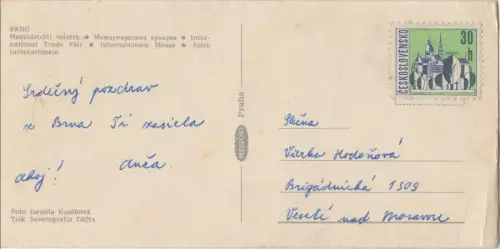 BRNO
Mezinárodní veletrh ● Международная ярмарка ● Inter-
national Trade Fair ● Internationale Messe ● Foire
Internationale
Srdečný pozdrav
z Brna Ti zasíla
Anča.
ahoj!
Foto Jarmila Kozáková
Tisk Severografia Děčín
PRESSFOTO Praha
30
h
ČESKOSLOVENSKO
Slečna
Vierka Hodoňová
Brigádnická 1509
Veselí nad Moravou